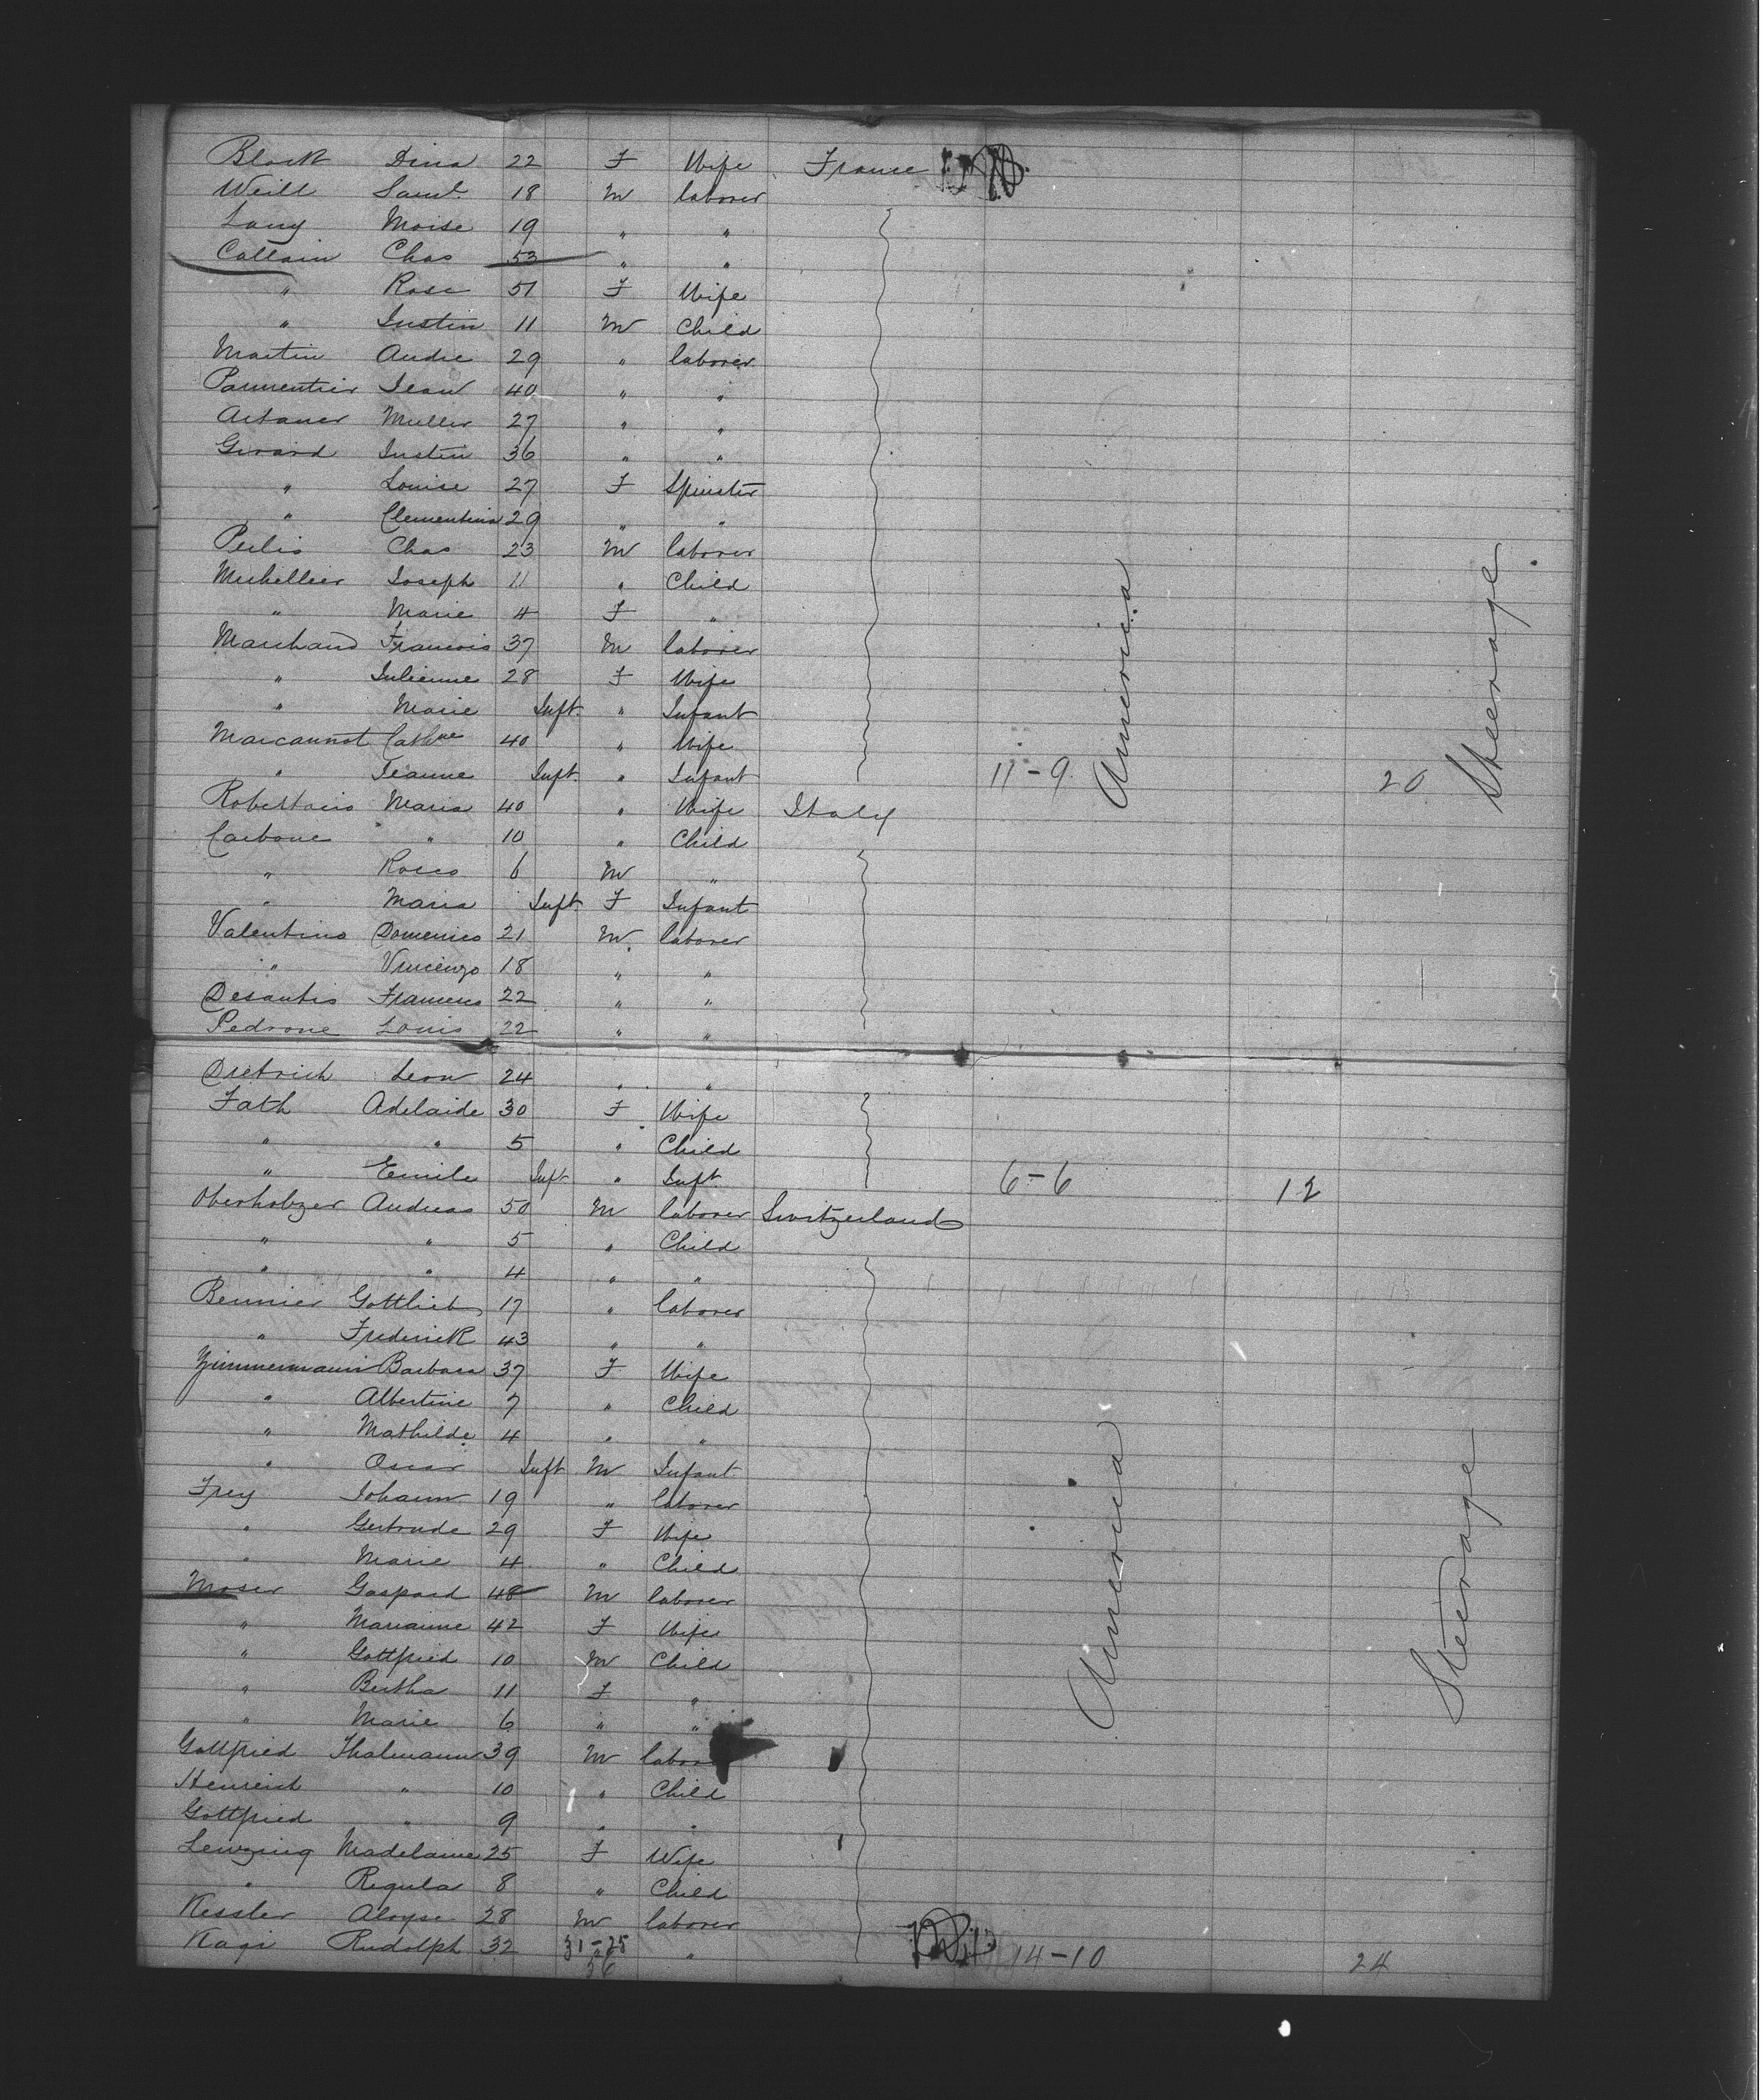 Block Dina 22 F Wife France
Weill Saml. 18 M laborer
Lany Moise 19 " "
Collain Chas 53 " "
" Rose 51 F Wife
" Justin 11 M Child
Martin Andre 29 " laborer
Parmentier Jean 40 " "
Artaner Muller 27 " "
Girard Justin 36 " "
" Louise 27 F Spinster
" Clementina 29 " "
Perlis Chas 23 M laborer
Michellier Joseph 11 " Child
" Marie 4 F "
Marchand Francois 37 M laborer
" Julienne 28 F Wife
" Marie Inft. " Infant
Marcannot Cathne 40 " Wife
" Jeanne Inft. " Infant 11-9 America 20 Steerage
Robertacio Maria 40 " Wife Italy
Carbone " 10 " Child
" Rocco 6 M "
" Maria Inft. F Infant
Valentino Domenico 21 M. laborer
" Vincenzo 18 " "
Desantis Francesco 22 " "
Pedrone Louis 22 " "
Dietrich Leon 24 " "
Fath Adelaide 30 F Wife
" " 5 " Child
" Emile Inft " Inft. 6-6 12
Oberholzer Andreas 50 M laborer Switzerland
" " 5 " Child
" " 4 " "
Bennier Gottlieb 17 " laborer
" Frederick 43 " "
Zimmermann Barbara 37 F Wife
" Albertine 7 " Child
" Mathilde 4 " "
" Oscar Inft M Infant
Frey Johann 19 " laborer
" Gertrude 29 F Wife
" Marie 4 " Child
Moser Gaspard 48 M laborer
" Marianne 42 F Wife
" Gottfried 10 M Child
" Bertha 11 F "
" Marie 6 " "
America Steerage
Gottfried Thalmann 39 M laborer
Heinrich " 10 " Child
Gottfried " 9 " "
Lenzing Madelaine 25 F Wife
" Regula 8 " Child
Kessler Aloyse 28 M laborer
Kagi Rudolph 32 31-25 " 14-10 24
56